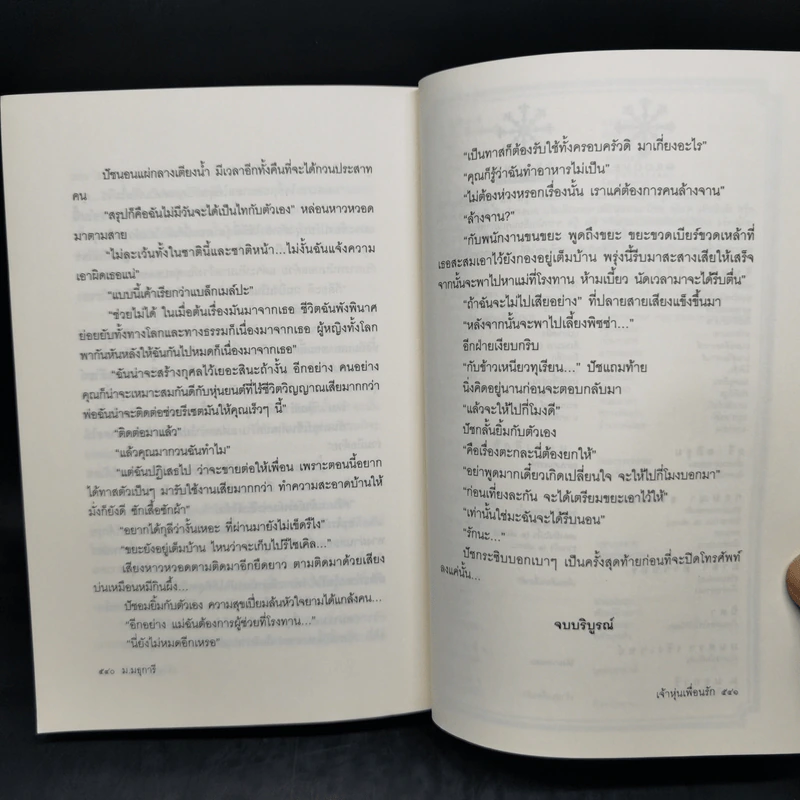 ปัซนอนแผ่กลางเตียงน้ำ มีเวลาอีกทั้งคืนที่จะได้กวนประสาท
คน
"สรุปก็คือฉันไม่มีวันจะได้เป็นไทกับตัวเอง" หล่อนหาวหวอด
มาตามสาย
"ไม่ละเว้นทั้งในชาตินี้และชาติหน้า...ไม่งั้นฉันแจ้งความ
เอาผิดเธอแน่"
"แบบนี้เค้าเรียกว่าแบล็กเมล์ปะ"
"ช่วยไม่ได้ ในเมื่อต้นเรื่องมันมาจากเธอ ชีวิตฉันพังพินาศ
ย่อยยับทั้งทางโลกและทางธรรมก็เนื่องมาจากเธอ ผู้หญิงทั้งโลก
พากันหันหลังให้ฉันกันไปหมดก็เนื่องมาจากเธอ"
"ฉันน่าจะสร้างกุศลไว้เยอะสินะถ้างั้น อีกอย่าง คนอย่าง
คุณก็น่าจะเหมาะสมกันดีกับหุ่นยนต์ที่ไร้ชีวิตวิญญาณเสียมากกว่า
พ่อฉันน่าจะติดต่อช่วยรีเซตมันให้คุณเร็วๆ นี้"
"ติดต่อมาแล้ว"
"แล้วคุณมากวนฉันทำไม"
"แต่ฉันปฏิเสธไป ว่าจะขายต่อให้เพื่อน เพราะตอนนี้อยาก
ได้ทาสตัวเป็นๆ มารับใช้งานเสียมากกว่า ทำความสะอาดบ้านให้
มั่งก็ยังดี ซักเสื้อซักผ้า"
"อยากได้กุลีว่างั้นเหอะ ที่ผ่านมายังไม่เข็ดรึไง"
"ขยะยังอยู่เต็มบ้าน ไหนว่าจะเก็บไปรีไซเคิล..."
เสียงหาวหวอดตามติดมาอีกยืดยาว ตามติดมาด้วยเสียง
บ่นเหมือนหมีกินผึ้ง...
ปัซอมยิ้มกับตัวเอง ความสุขเปี่ยมล้นหัวใจยามได้แกล้งคน...
"อีกอย่าง แม่ฉันต้องการผู้ช่วยที่โรงทาน..."
"นี่ยังไม่หมดอีกเหรอ"
๕๔๐ ม.มธุการี
"เป็นทาสก็ต้องรับใช้ทั้งครอบครัวดิ มาเกี่ยงอะไร"
"คุณก็รู้ว่าฉันทำอาหารไม่เป็น"
"ไม่ต้องห่วงหรอกเรื่องนั้น เราแค่ต้องการคนล้างจาน"
"ล้างจาน?"
"กับพนักงานขนขยะ พูดถึงขยะ ขยะขวดเบียร์ขวดเหล้าที่
เธอสะสมเอาไว้ยังกองอยู่เต็มบ้าน พรุ่งนี้รีบมาสะสางเสียให้เสร็จ
จากนั้นจะพาไปหาแม่ที่โรงทาน ห้ามเบี้ยว นัดเวลามาจะได้รีบตื่น"
"ถ้าฉันจะไม่ไปเสียอย่าง" ที่ปลายสายเสียงแข็งขึ้นมา
"หลังจากนั้นจะพาไปเลี้ยงพิซซ่า..."
อีกฝ่ายเงียบกริบ
"กับข้าวเหนียวทุเรียน..." ปัซแถมท้าย
นิ่งคิดอยู่นานก่อนจะตอบกลับมา
"แล้วจะให้ไปกี่โมงดี"
ปัซกลั้นยิ้มกับตัวเอง
"คือเรื่องตะกละนี่ต้องยกให้"
"อย่าพูดมากเดี๋ยวเกิดเปลี่ยนใจ จะให้ไปกี่โมงบอกมา"
"ก่อนเที่ยงละกัน จะได้เตรียมขยะเอาไว้ให้"
"เท่านั้นใช่มะฉันจะได้รีบนอน"
"รักนะ..."
ปัซกระซิบบอกเบาๆ เป็นครั้งสุดท้ายก่อนที่จะปิดโทรศัพท์
ลงแค่นั้น...
จบบริบูรณ์
เจ้าหุ่นเพื่อนรัก ๕๔๑